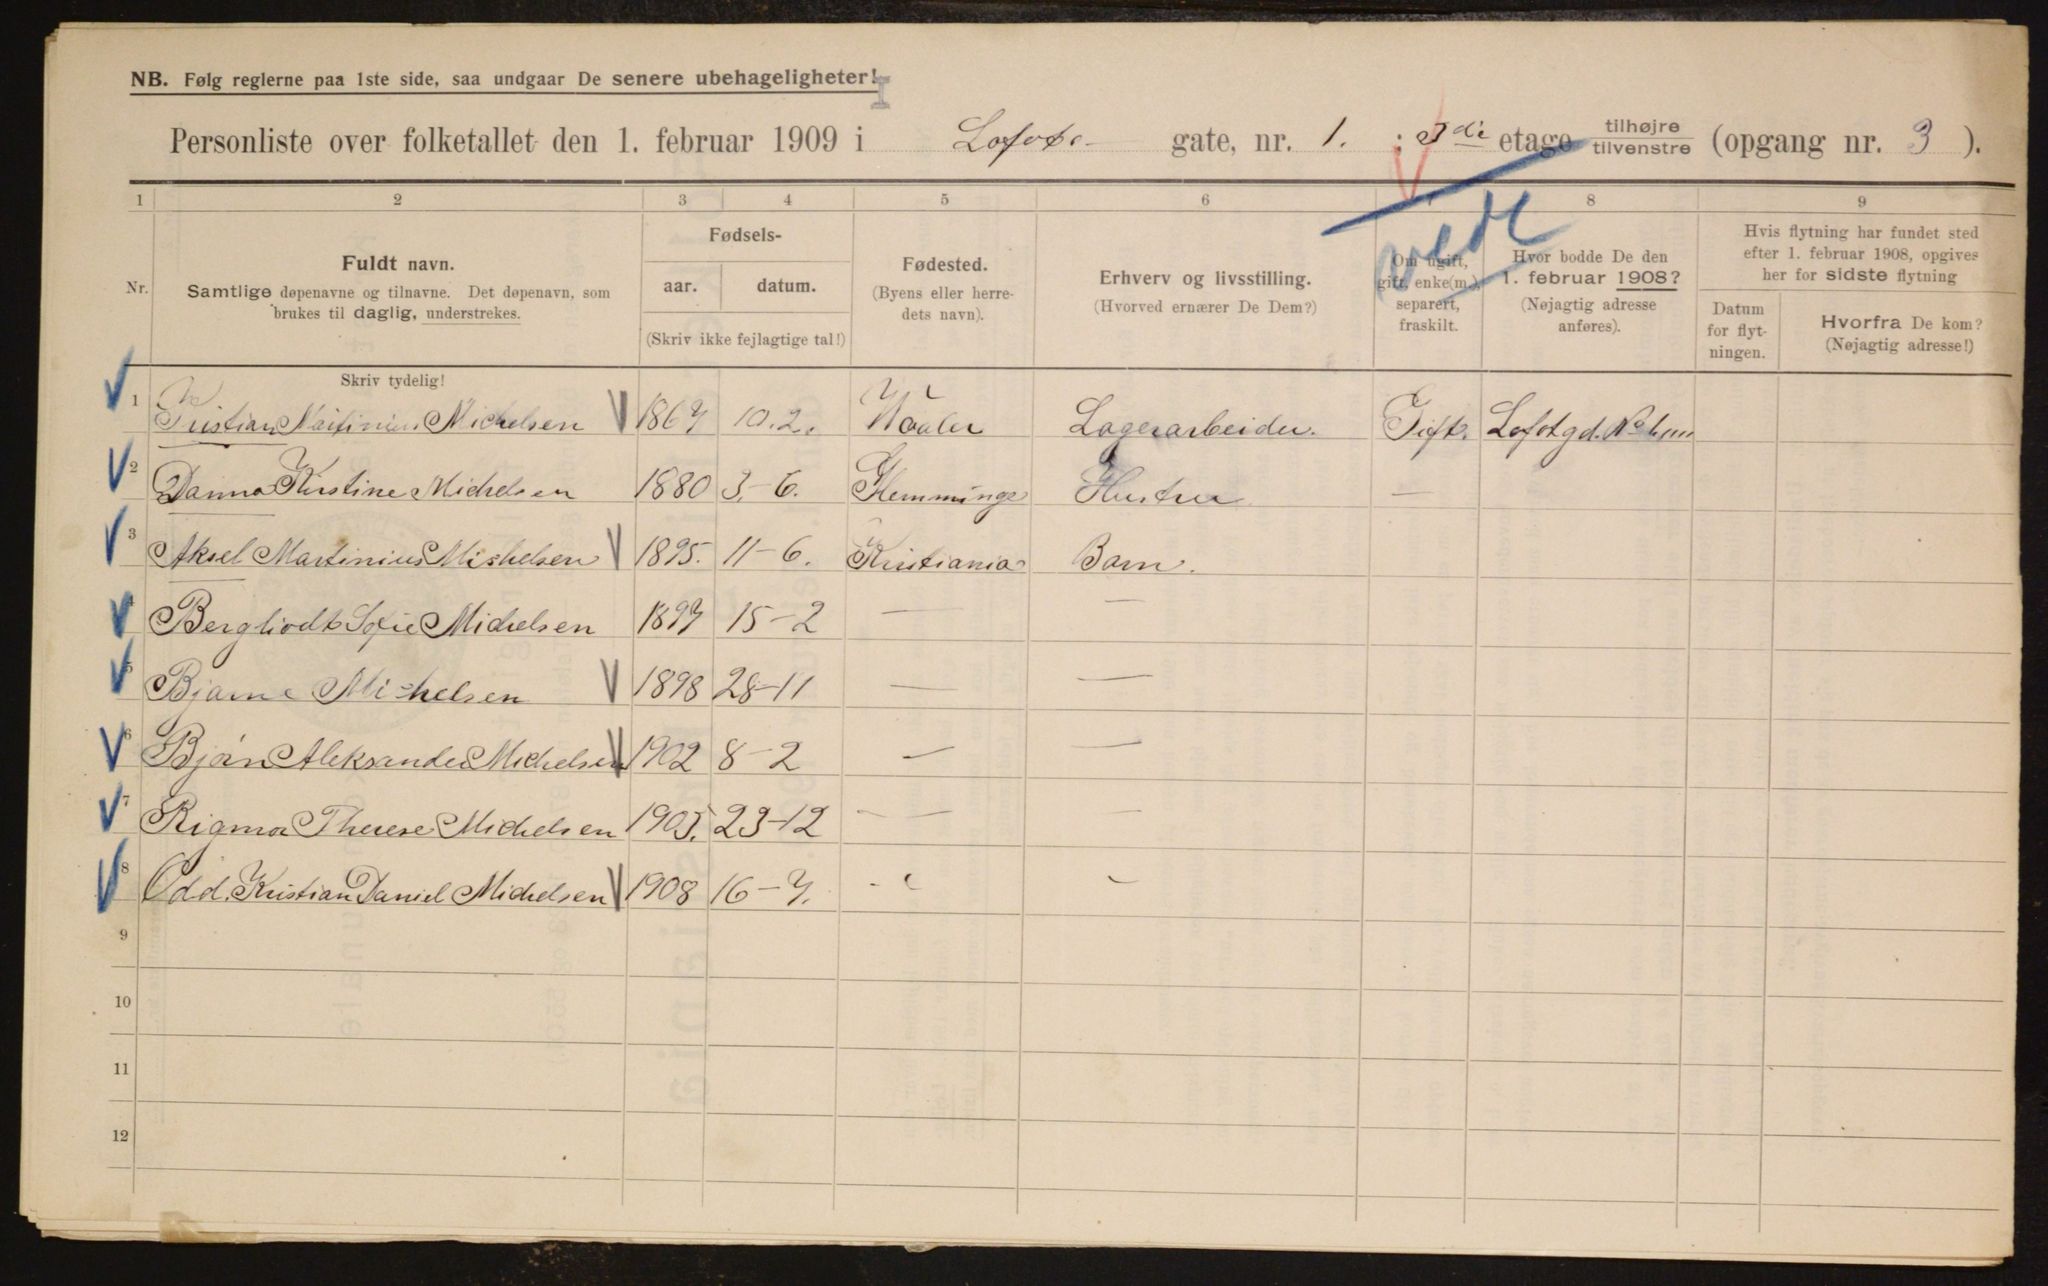 NB. Følg reglerne paa 1ste side, saa undgaar De senere ubehageligheter!
Personliste over folketallet den 1. februar 1909 i Lofote- gate, nr. 1. : 3die etage tilhøjre tilvenstre (opgang nr. 3 ).
1 2 3 4 5 6 7 8 9
Nr.
Fuldt navn.
Samtlige døpenavne og tilnavne. Det døpenavn, som
brukes til daglig, understrekes.
Fødsels-
aar. datum.
(Skriv ikke fejlagtige tal!)
Fødested.
(Byens eller herre-
dets navn).
Erhverv og livsstilling.
(Hvorved ernærer De Dem?)
Om ugift,
gift, enke(m.),
separert,
fraskilt.
Hvor bodde De den
1. februar 1908?
(Nøjagtig adresse
anføres).
Hvis flytning har fundet sted
efter 1. februar 1908, opgives
her for sidste flytning
Datum
for flyt-
ningen.
Hvorfra De kom?
(Nøjagtig adresse!)
Skriv tydelig!
1 Kristian Martinius Michelsen 1867 10.2. Vaaler Lagerarbeider. Gift. Lofotgd. No
2 Danna Kirstine Michelsen 1880 3-6. Glemminge Hustru —
3 Aksel Martinius Michelsen 1895. 11-6. Kristiania Barn.
4 Bergliodt Sofie Michelsen 1897 15-2 — —
5 Bjarne Michelsen 1898 28-11 — —
6 Bjørn Aleksander Michelsen 1902 8-2 — —
7 Rigmor Therese Michelsen 1905. 23-12 — — —
8 Odd. Kristian Daniel Michelsen 1908 16-7.
9
10
11
12